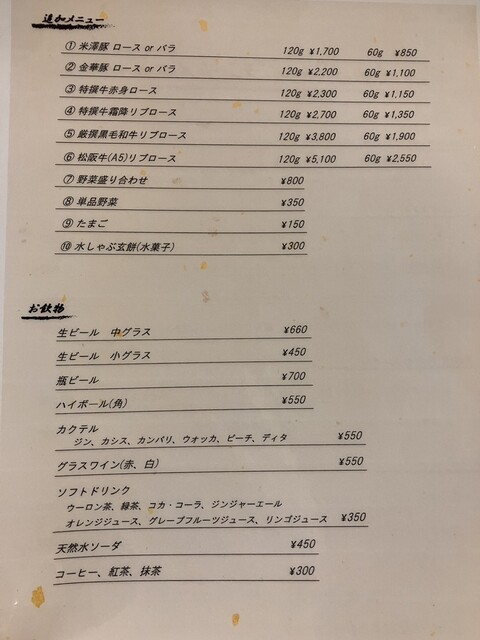 追加メニュー
① 米澤豚 ロース or バラ 120g ¥1,700 60g ¥850
② 金華豚 ロース or バラ 120g ¥2,200 60g ¥1,100
③ 特撰牛赤身ロース 120g ¥2,300 60g ¥1,150
④ 特撰牛霜降リブロース 120g ¥2,700 60g ¥1,350
⑤ 厳撰黒毛和牛リブロース 120g ¥3,800 60g ¥1,900
⑥ 松阪牛(A5)リブロース 120g ¥5,100 60g ¥2,550
⑦ 野菜盛り合わせ ¥800
⑧ 単品野菜 ¥350
⑨ たまご ¥150
⑩ 水しゃぶ玄餅(水菓子) ¥300
お飲物
生ビール 中グラス ¥660
生ビール 小グラス ¥450
瓶ビール ¥700
ハイボール(角) ¥550
カクテル
ジン、カシス、カンパリ、ウォッカ、ピーチ、ディタ ¥550
グラスワイン(赤、白) ¥550
ソフトドリンク
ウーロン茶、緑茶、コカ・コーラ、ジンジャーエール
オレンジジュース、グレープフルーツジュース、リンゴジュース ¥350
天然水ソーダ ¥450
コーヒー、紅茶、抹茶 ¥300